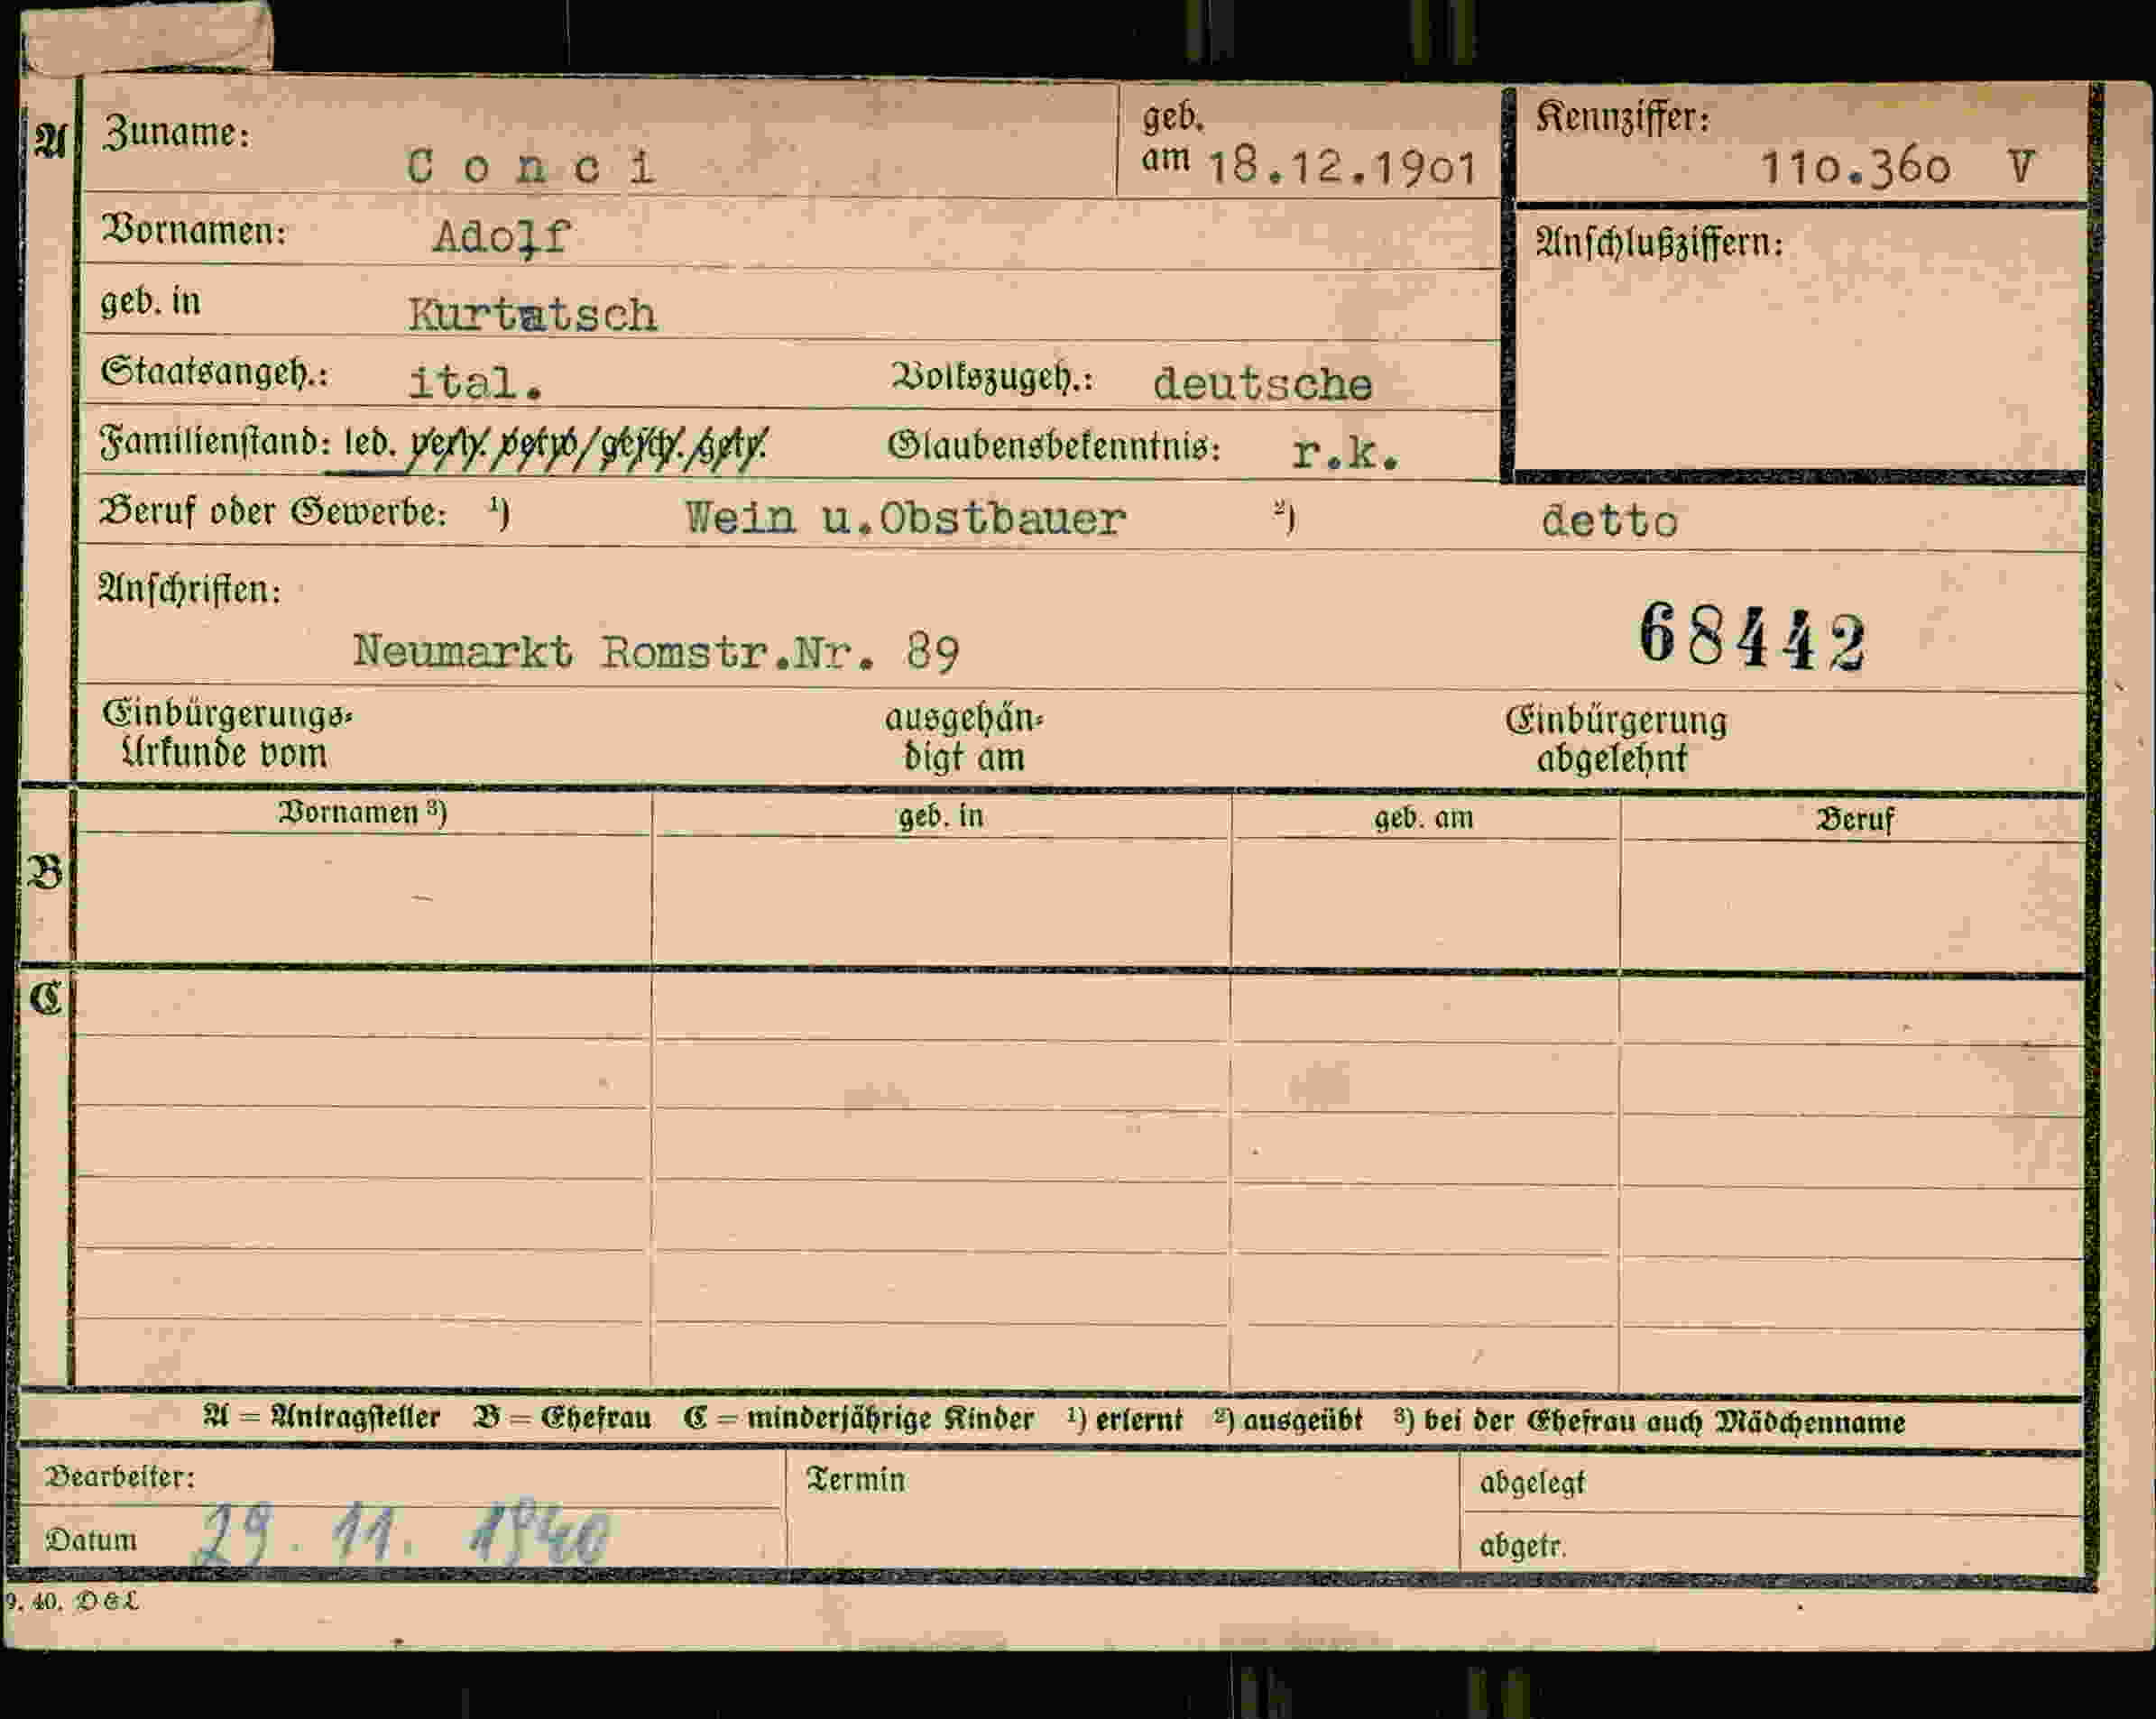 A Zuname: Conci geb. am 18.12.1901 Kennziffer: 110.360 V
Vornamen: Adolf Anschlußziffern:
geb. in Kurtatsch
Staatsangeh.: ital. Volkszugeh.: deutsche
Familienstand: led. verh. verw. / gesch. / getr. Glaubensbekenntnis: r.k.
Beruf oder Gewerbe: ¹) Wein u.Obstbauer ²) detto
Anschriften:
68442
Neumarkt Romstr.Nr. 89
Einbürgerungs- ausgehän- Einbürgerung
Urkunde vom digt am abgelehnt
Vornamen ³) geb. in geb. am Beruf
B
C
A = Antragsteller B = Ehefrau C = minderjährige Kinder ¹) erlernt ²) ausgeübt ³) bei der Ehefrau auch Mädchenname
Bearbeiter: Termin abgelegt
Datum 29. 11. 1940 abgetr.
9. 40. D&L